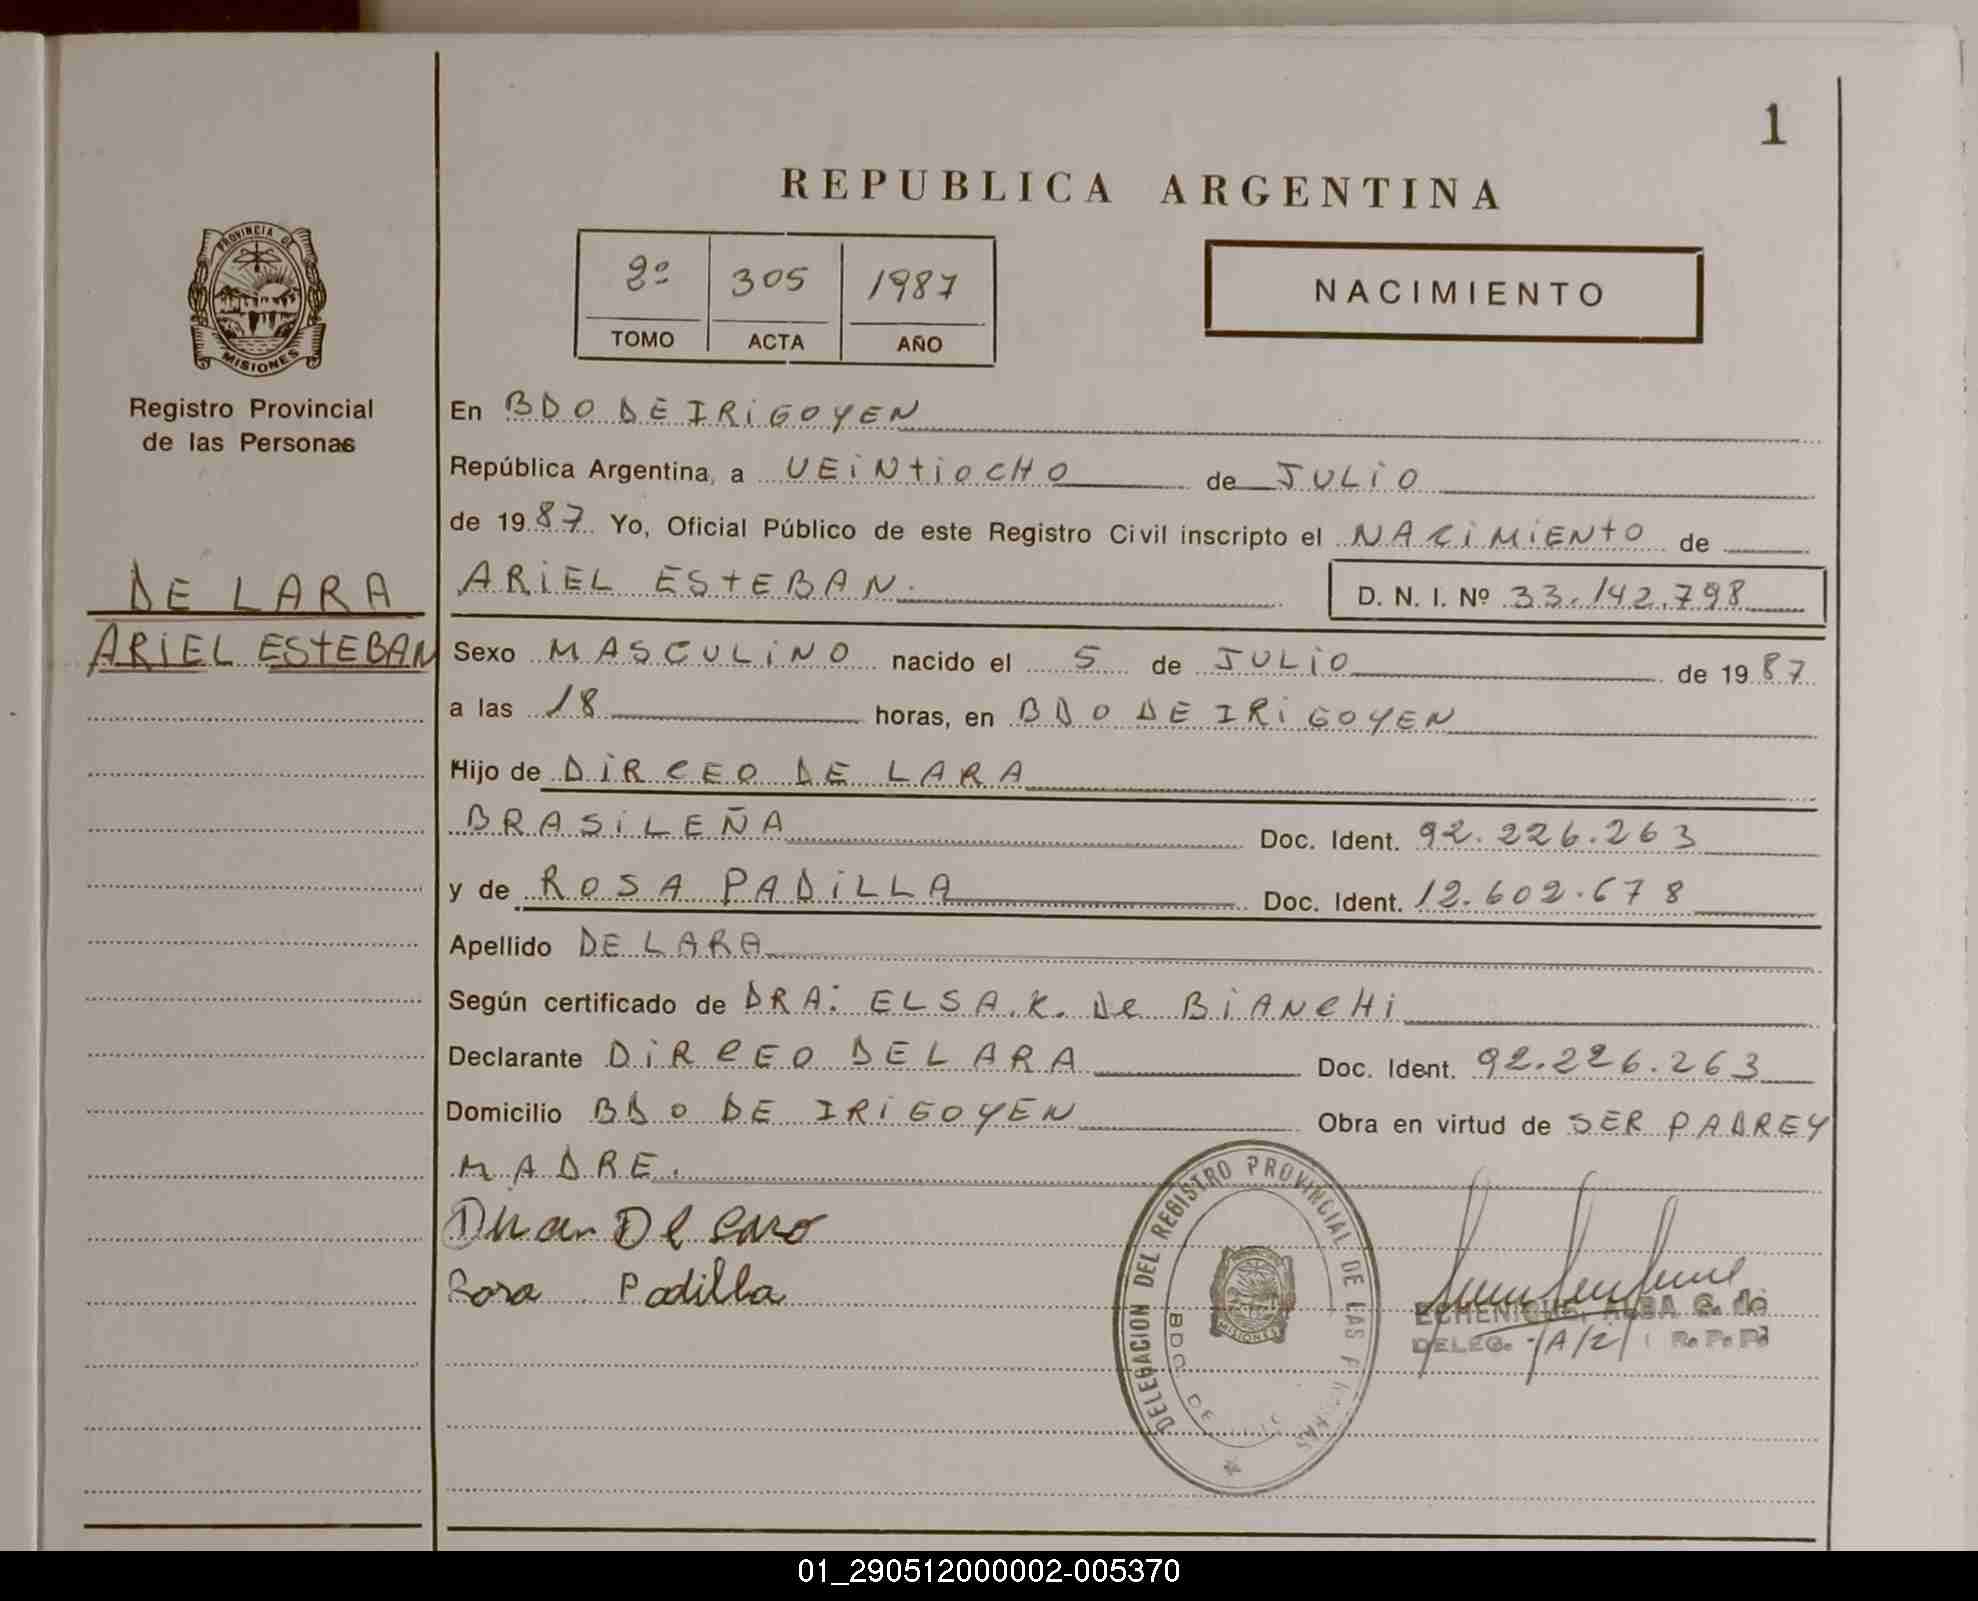 1
REPUBLICA ARGENTINA
PROVINCIA DE
MISIONES
Registro Provincial
de las Personas
DE LARA
ARIEL ESTEBAN
2º 305 1987
TOMO ACTA AÑO
NACIMIENTO
En BDO DE IRIGOYEN
República Argentina, a VEINTIOCHO de JULIO
de 1987 Yo, Oficial Público de este Registro Civil inscripto el NACIMIENTO de
ARIEL ESTEBAN. D. N. I. Nº 33.142.798
Sexo MASCULINO nacido el 5 de JULIO de 1987
a las 18 horas, en BDO DE IRIGOYEN
Hijo de DIRCEO DE LARA
BRASILEÑA Doc. Ident. 92.226.263
y de ROSA PADILLA Doc. Ident. 12.602.678
Apellido DE LARA
Según certificado de DRA: ELSA.K. De BIANCHI
Declarante DIRCEO DE LARA Doc. Ident. 92.226.263
Domicilio BDO DE IRIGOYEN Obra en virtud de SER PADRE Y
MADRE.
Rosa Padilla
DELEGACION DEL REGISTRO PROVINCIAL DE LAS
BDO. DE
MISIONES
ECHENIQUE, ALBA G. de
DELEG. R. P. P.
01_290512000002-005370